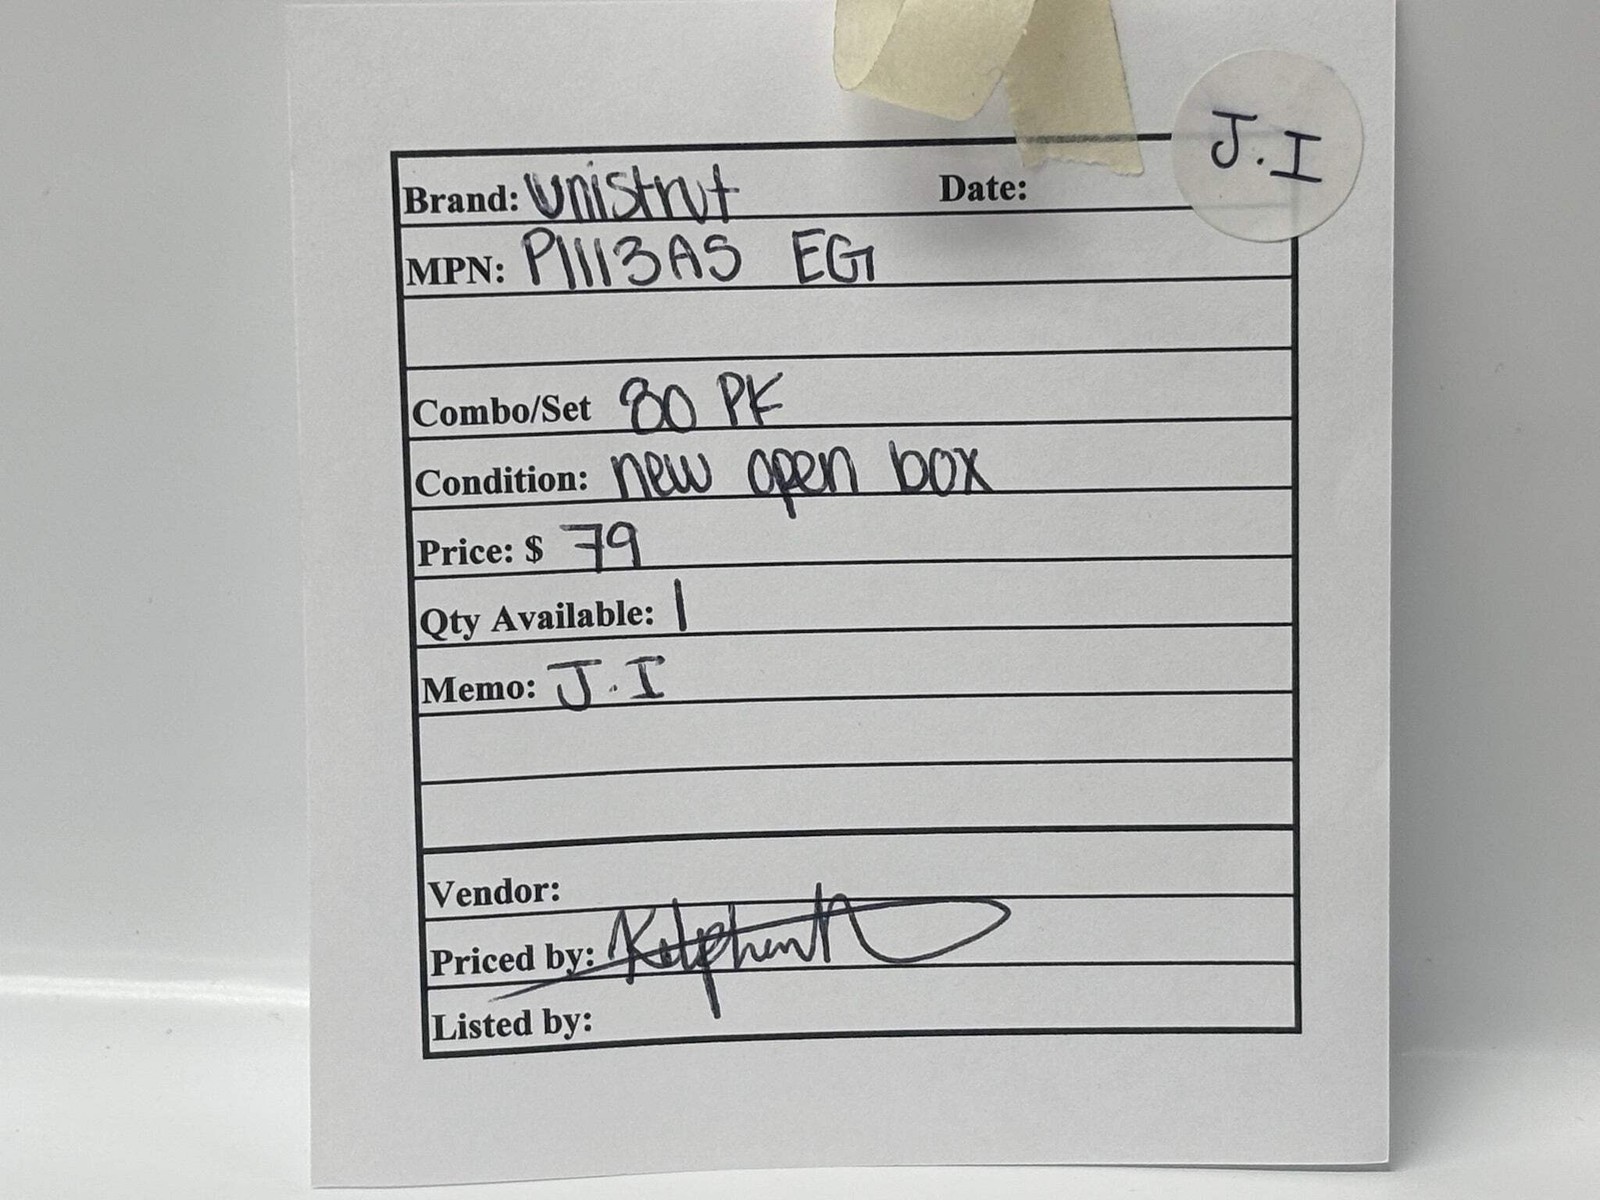 J.I
Brand: Unistrut Date:
MPN: P1113AS EG
Combo/Set 80 PK
Condition: new open box
Price: $ 79
Qty Available: 1
Memo: J.I
Vendor:
Priced by:
Listed by: